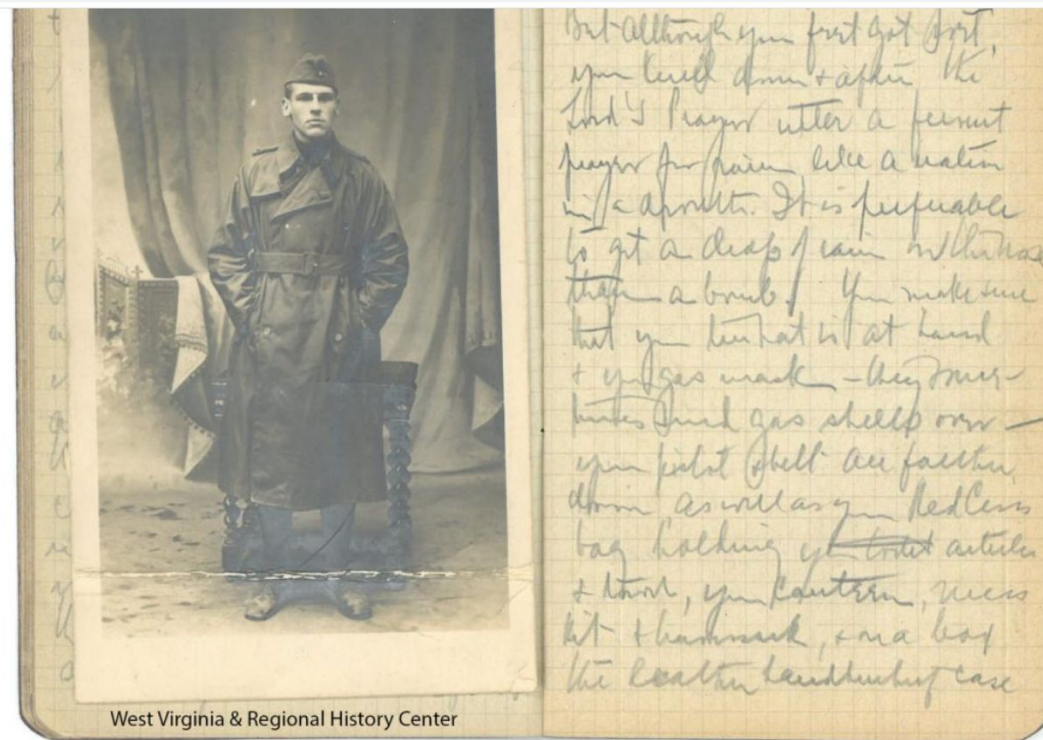 But although your feet get wet,
you kneel down & after the
Lord's Prayer utter a fervent
prayer for rain like a nation
in a drouth. It is preferable
to get a drop of rain on the nose
than a bomb. You make sure
that your tin hat is at hand
& your gas mask – they some-
times send gas shells over –
your pistol & belt are farther
down as well as your Red Cross
bag holding your toilet articles
& towel, your canteen, mess
kit & haversack, & on a box
the leather handkerchief case
West Virginia & Regional History Center